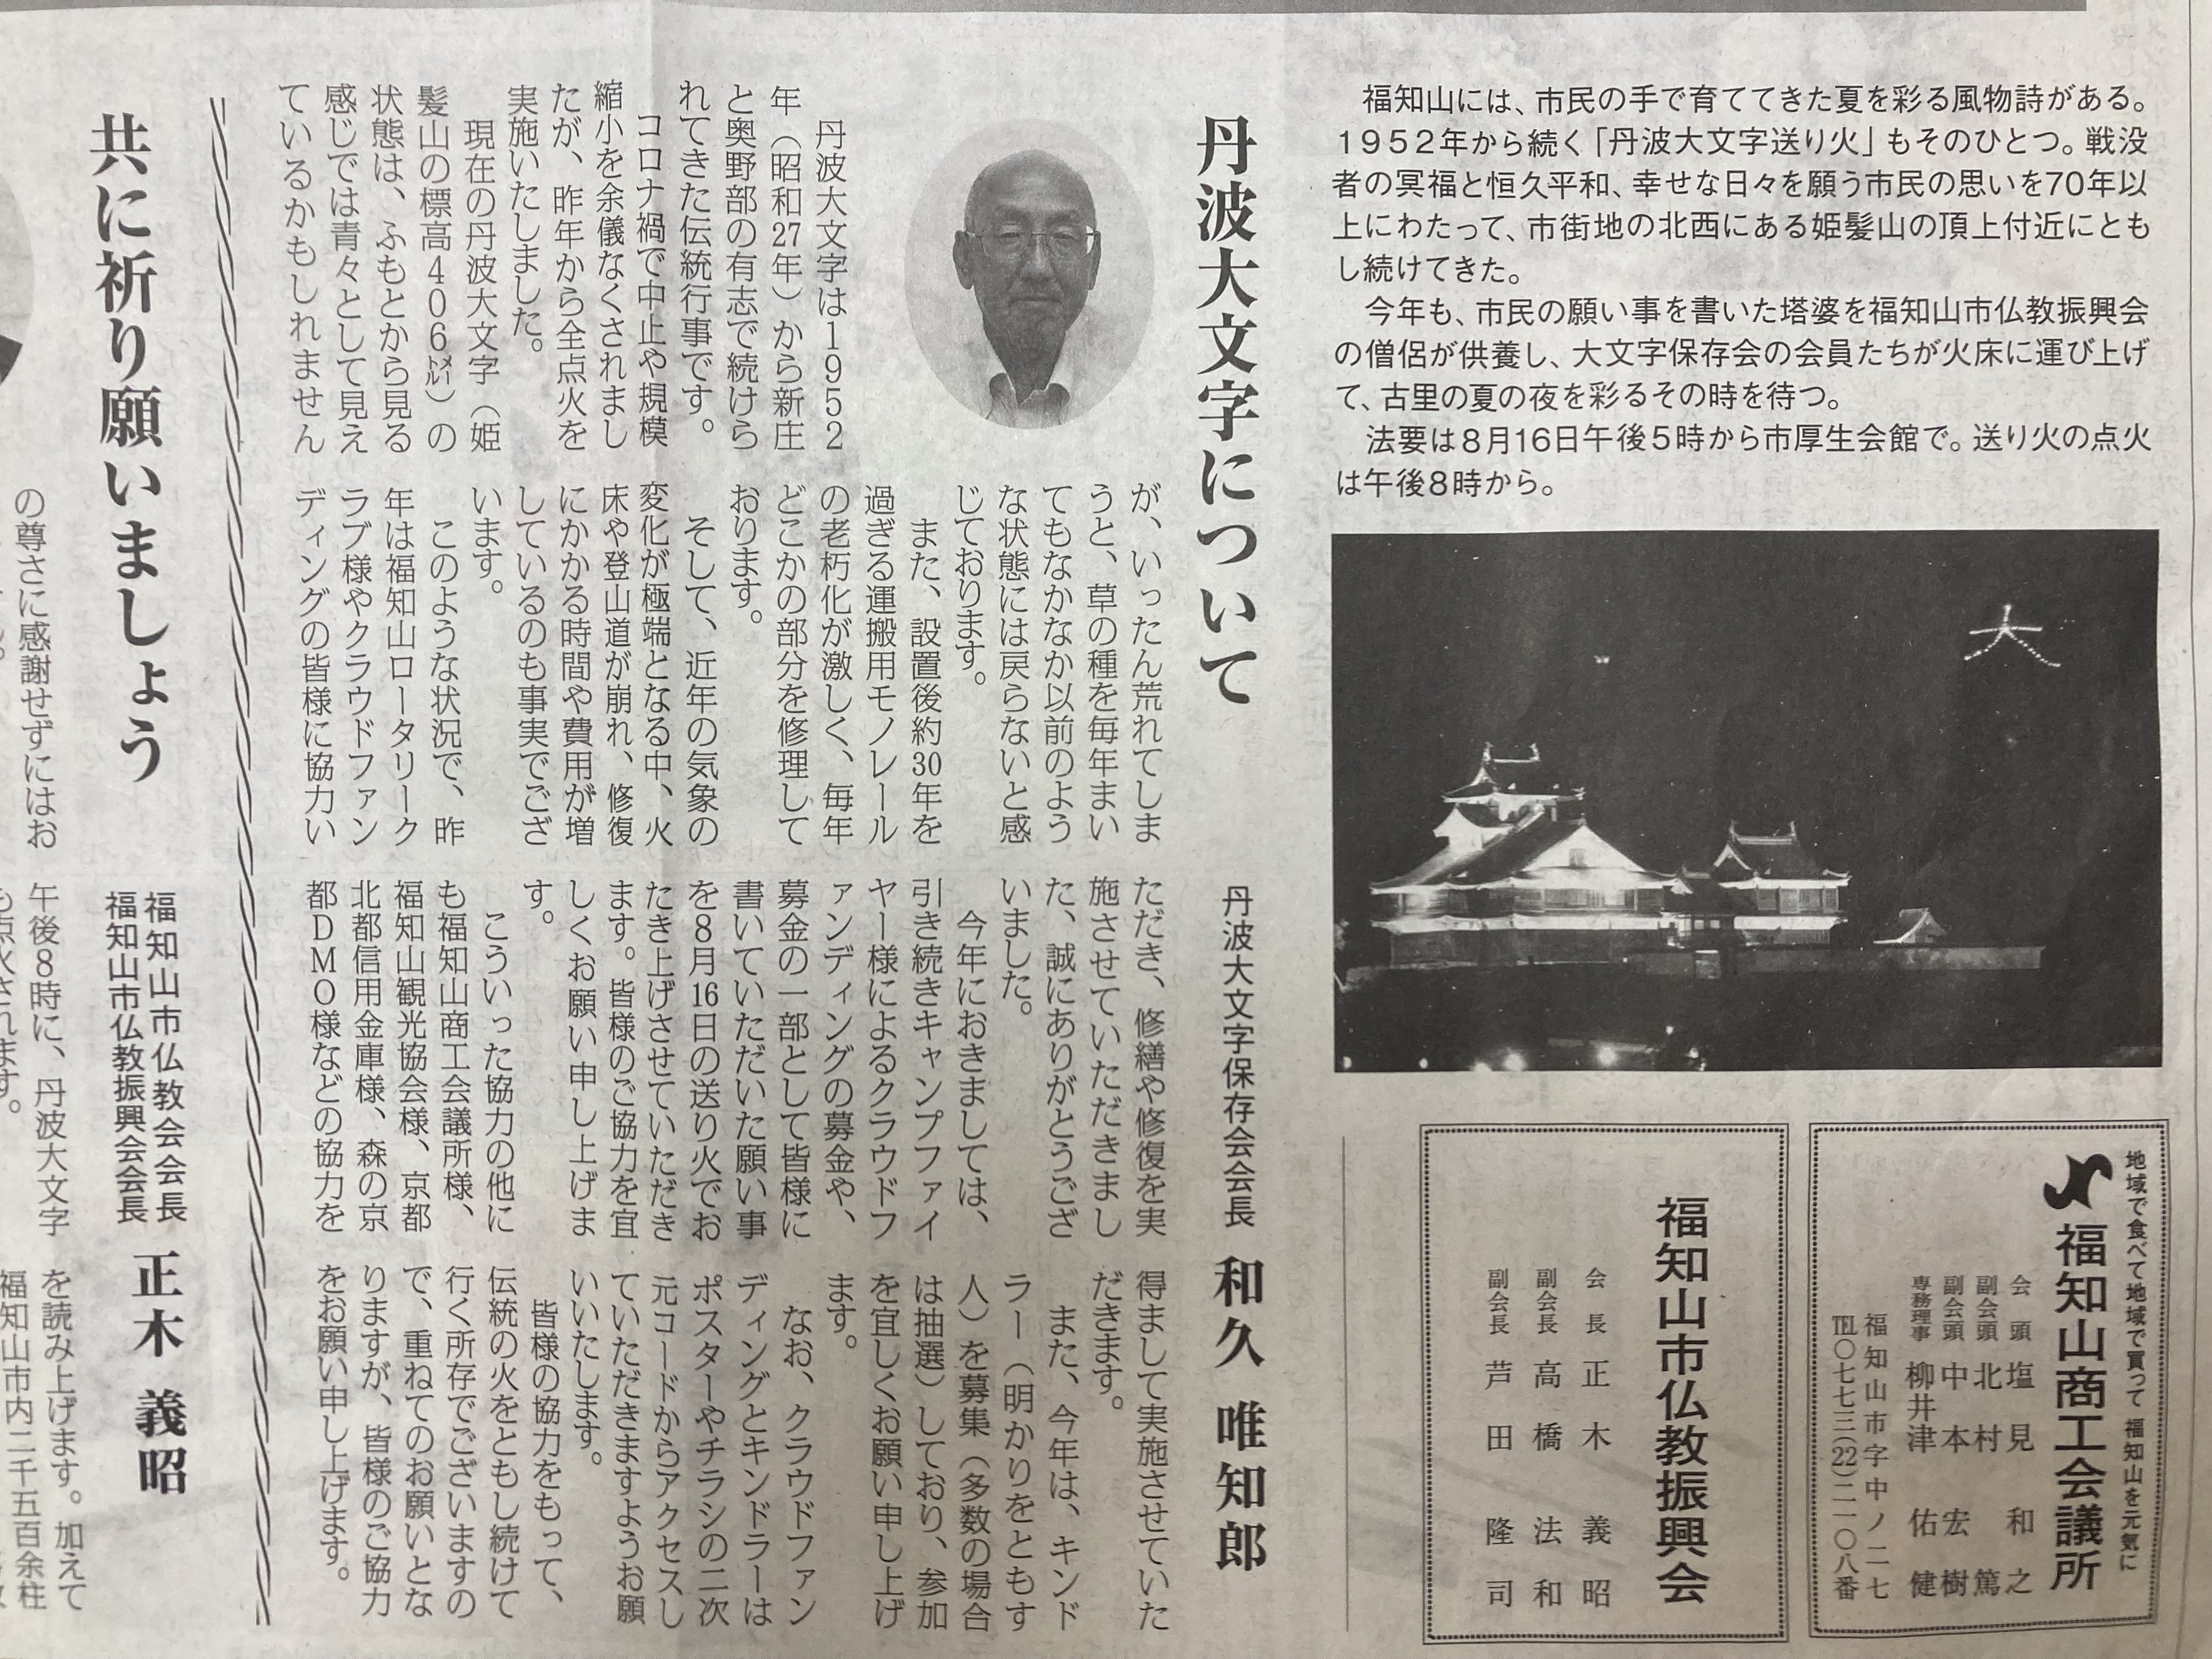 福知山には、市民の手で育ててきた夏を彩る風物詩がある。
1952年から続く「丹波大文字送り火」もそのひとつ。戦没
者の冥福と恒久平和、幸せな日々を願う市民の思いを70年以
上にわたって、市街地の北西にある姫髪山の頂上付近にとも
し続けてきた。
今年も、市民の願い事を書いた塔婆を福知山市仏教振興会
の僧侶が供養し、大文字保存会の会員たちが火床に運び上げ
て、古里の夏の夜を彩るその時を待つ。
法要は8月16日午後5時から市厚生会館で。送り火の点火
は午後8時から。
大
地域で食べて地域で買って 福知山を元気に
福知山商工会議所
会頭 塩見和之
副会頭 北村篤
副会頭 中本宏樹
専務理事 柳井津佑健
福知山市字中ノ二七
TEL〇七七三(22)二一〇八番
福知山市仏教振興会
会長 正木義昭
副会長 高橋法和
副会長 芦田隆司
丹波大文字について
丹波大文字保存会会長 和久 唯知郎
丹波大文字は1952
年（昭和27年）から新庄
と奥野部の有志で続けら
れてきた伝統行事です。
コロナ禍で中止や規模
縮小を余儀なくされまし
たが、昨年から全点火を
実施いたしました。
現在の丹波大文字（姫
髪山の標高406㍍）の
状態は、ふもとから見る
感じでは青々として見え
ているかもしれません
が、いったん荒れてしま
うと、草の種を毎年まい
てもなかなか以前のよう
な状態には戻らないと感
じております。
また、設置後約30年を
過ぎる運搬用モノレール
の老朽化が激しく、毎年
どこかの部分を修理して
おります。
そして、近年の気象の
変化が極端となる中、火
床や登山道が崩れ、修復
にかかる時間や費用が増
しているのも事実でござ
います。
このような状況で、昨
年は福知山ロータリーク
ラブ様やクラウドファン
ディングの皆様に協力い
ただき、修繕や修復を実
施させていただきまし
た、誠にありがとうござ
いました。
今年におきましては、
引き続きキャンプファイ
ヤー様によるクラウドフ
ァンディングの募金や、
募金の一部として皆様に
書いていただいた願い事
を8月16日の送り火でお
たき上げさせていただき
ます。皆様のご協力を宜
しくお願い申し上げま
す。
こういった協力の他に
も福知山商工会議所様、
福知山観光協会様、京都
北都信用金庫様、森の京
都DMO様などの協力を
得まして実施させていた
だきます。
また、今年は、キンド
ラー（明かりをともす
人）を募集（多数の場合
は抽選）しており、参加
を宜しくお願い申し上げ
ます。
なお、クラウドファン
ディングとキンドラーは
ポスターやチラシの二次
元コードからアクセスし
ていただきますようお願
いいたします。
皆様の協力をもって、
伝統の火をともし続けて
行く所存でございますの
で、重ねてのお願いとな
りますが、皆様のご協力
をお願い申し上げます。
共に祈り願いましょう
福知山市仏教会会長
福知山市仏教振興会会長 正木 義昭
の尊さに感謝せずにはお
午後8時に、丹波大文字
も点火されます。
を読み上げます。加えて
福知山市内二千五百余柱